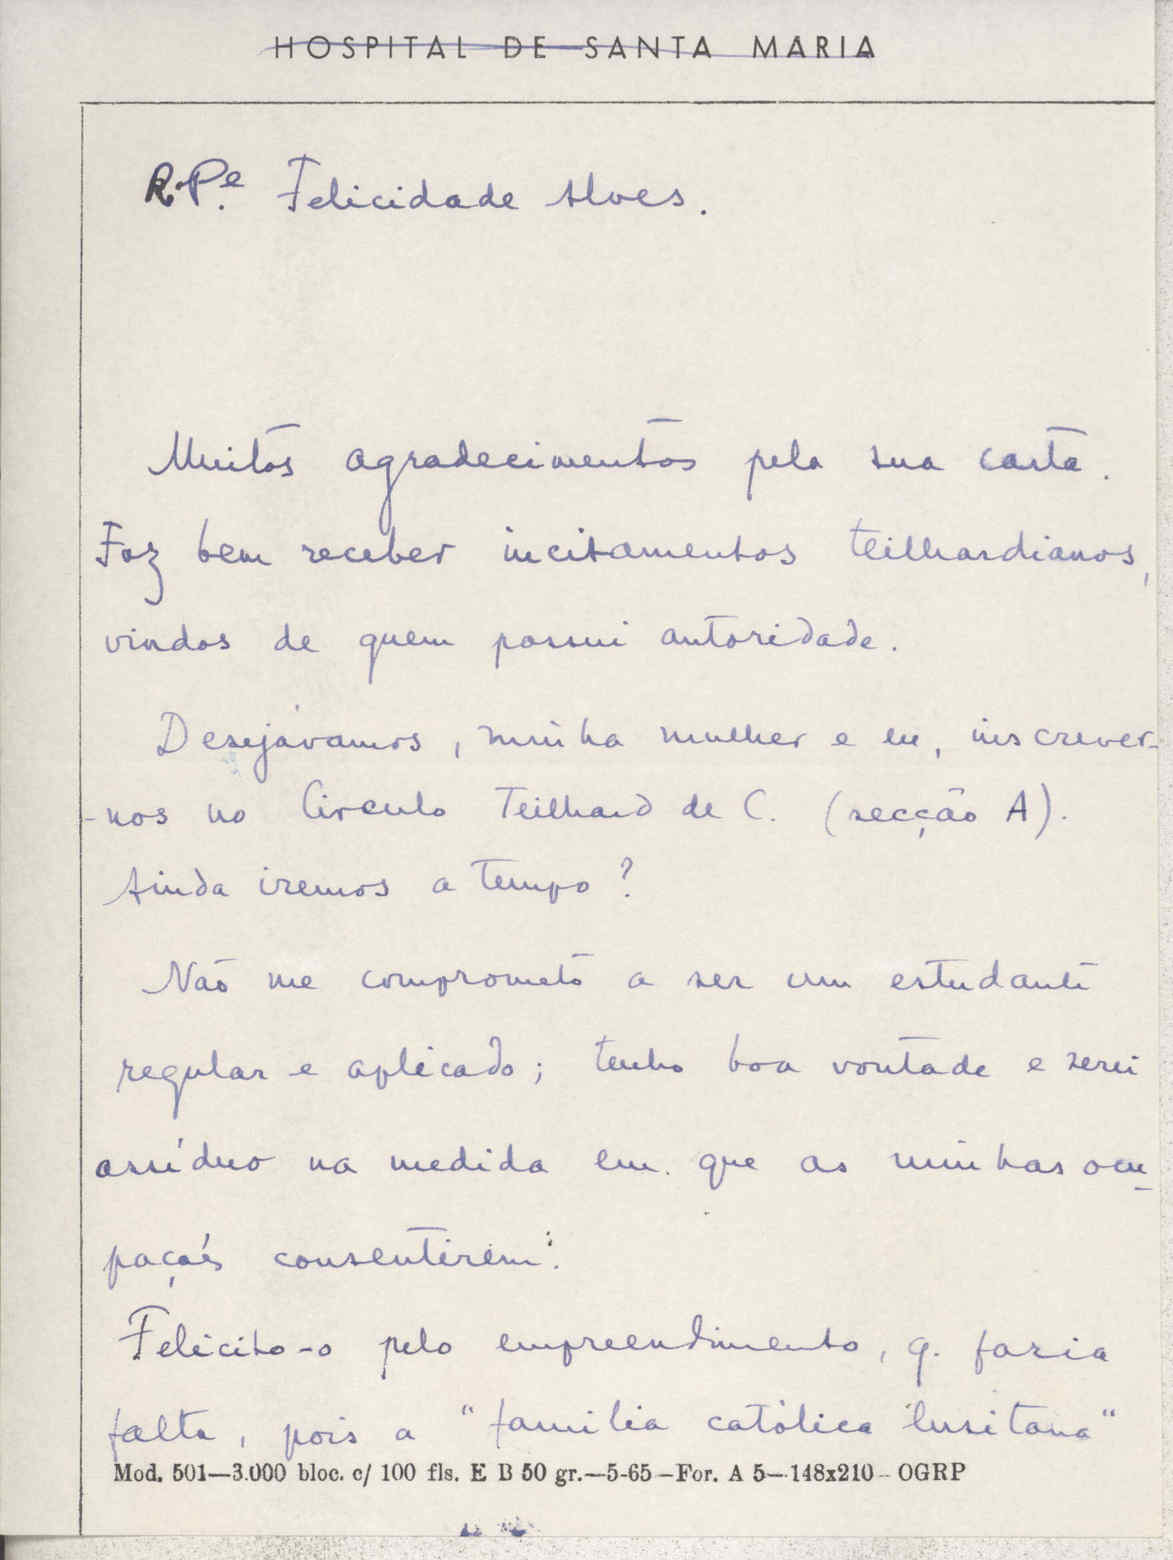 HOSPITAL DE SANTA MARIA
R. Pe. Felicidade Alves.
Muitos agradecimentos pela sua carta.
Faz bem receber incitamentos teilhardianos,
vindos de quem possui autoridade.
Desejávamos, minha mulher e eu, inscrever-
-nos no Círculo Teilhard de C. (secção A).
Ainda iremos a tempo?
Não me comprometo a ser um estudante
regular e aplicado; tenho boa vontade e serei
assíduo na medida em que as minhas ocu-
pações consentirem.
Felicito-o pelo empreendimento, q. fazia
falta, pois a "família católica lusitana"
Mod. 501—3.000 bloc. c/ 100 fls. E B 50 gr.—5-65—For. A 5—148x210 - OGRP